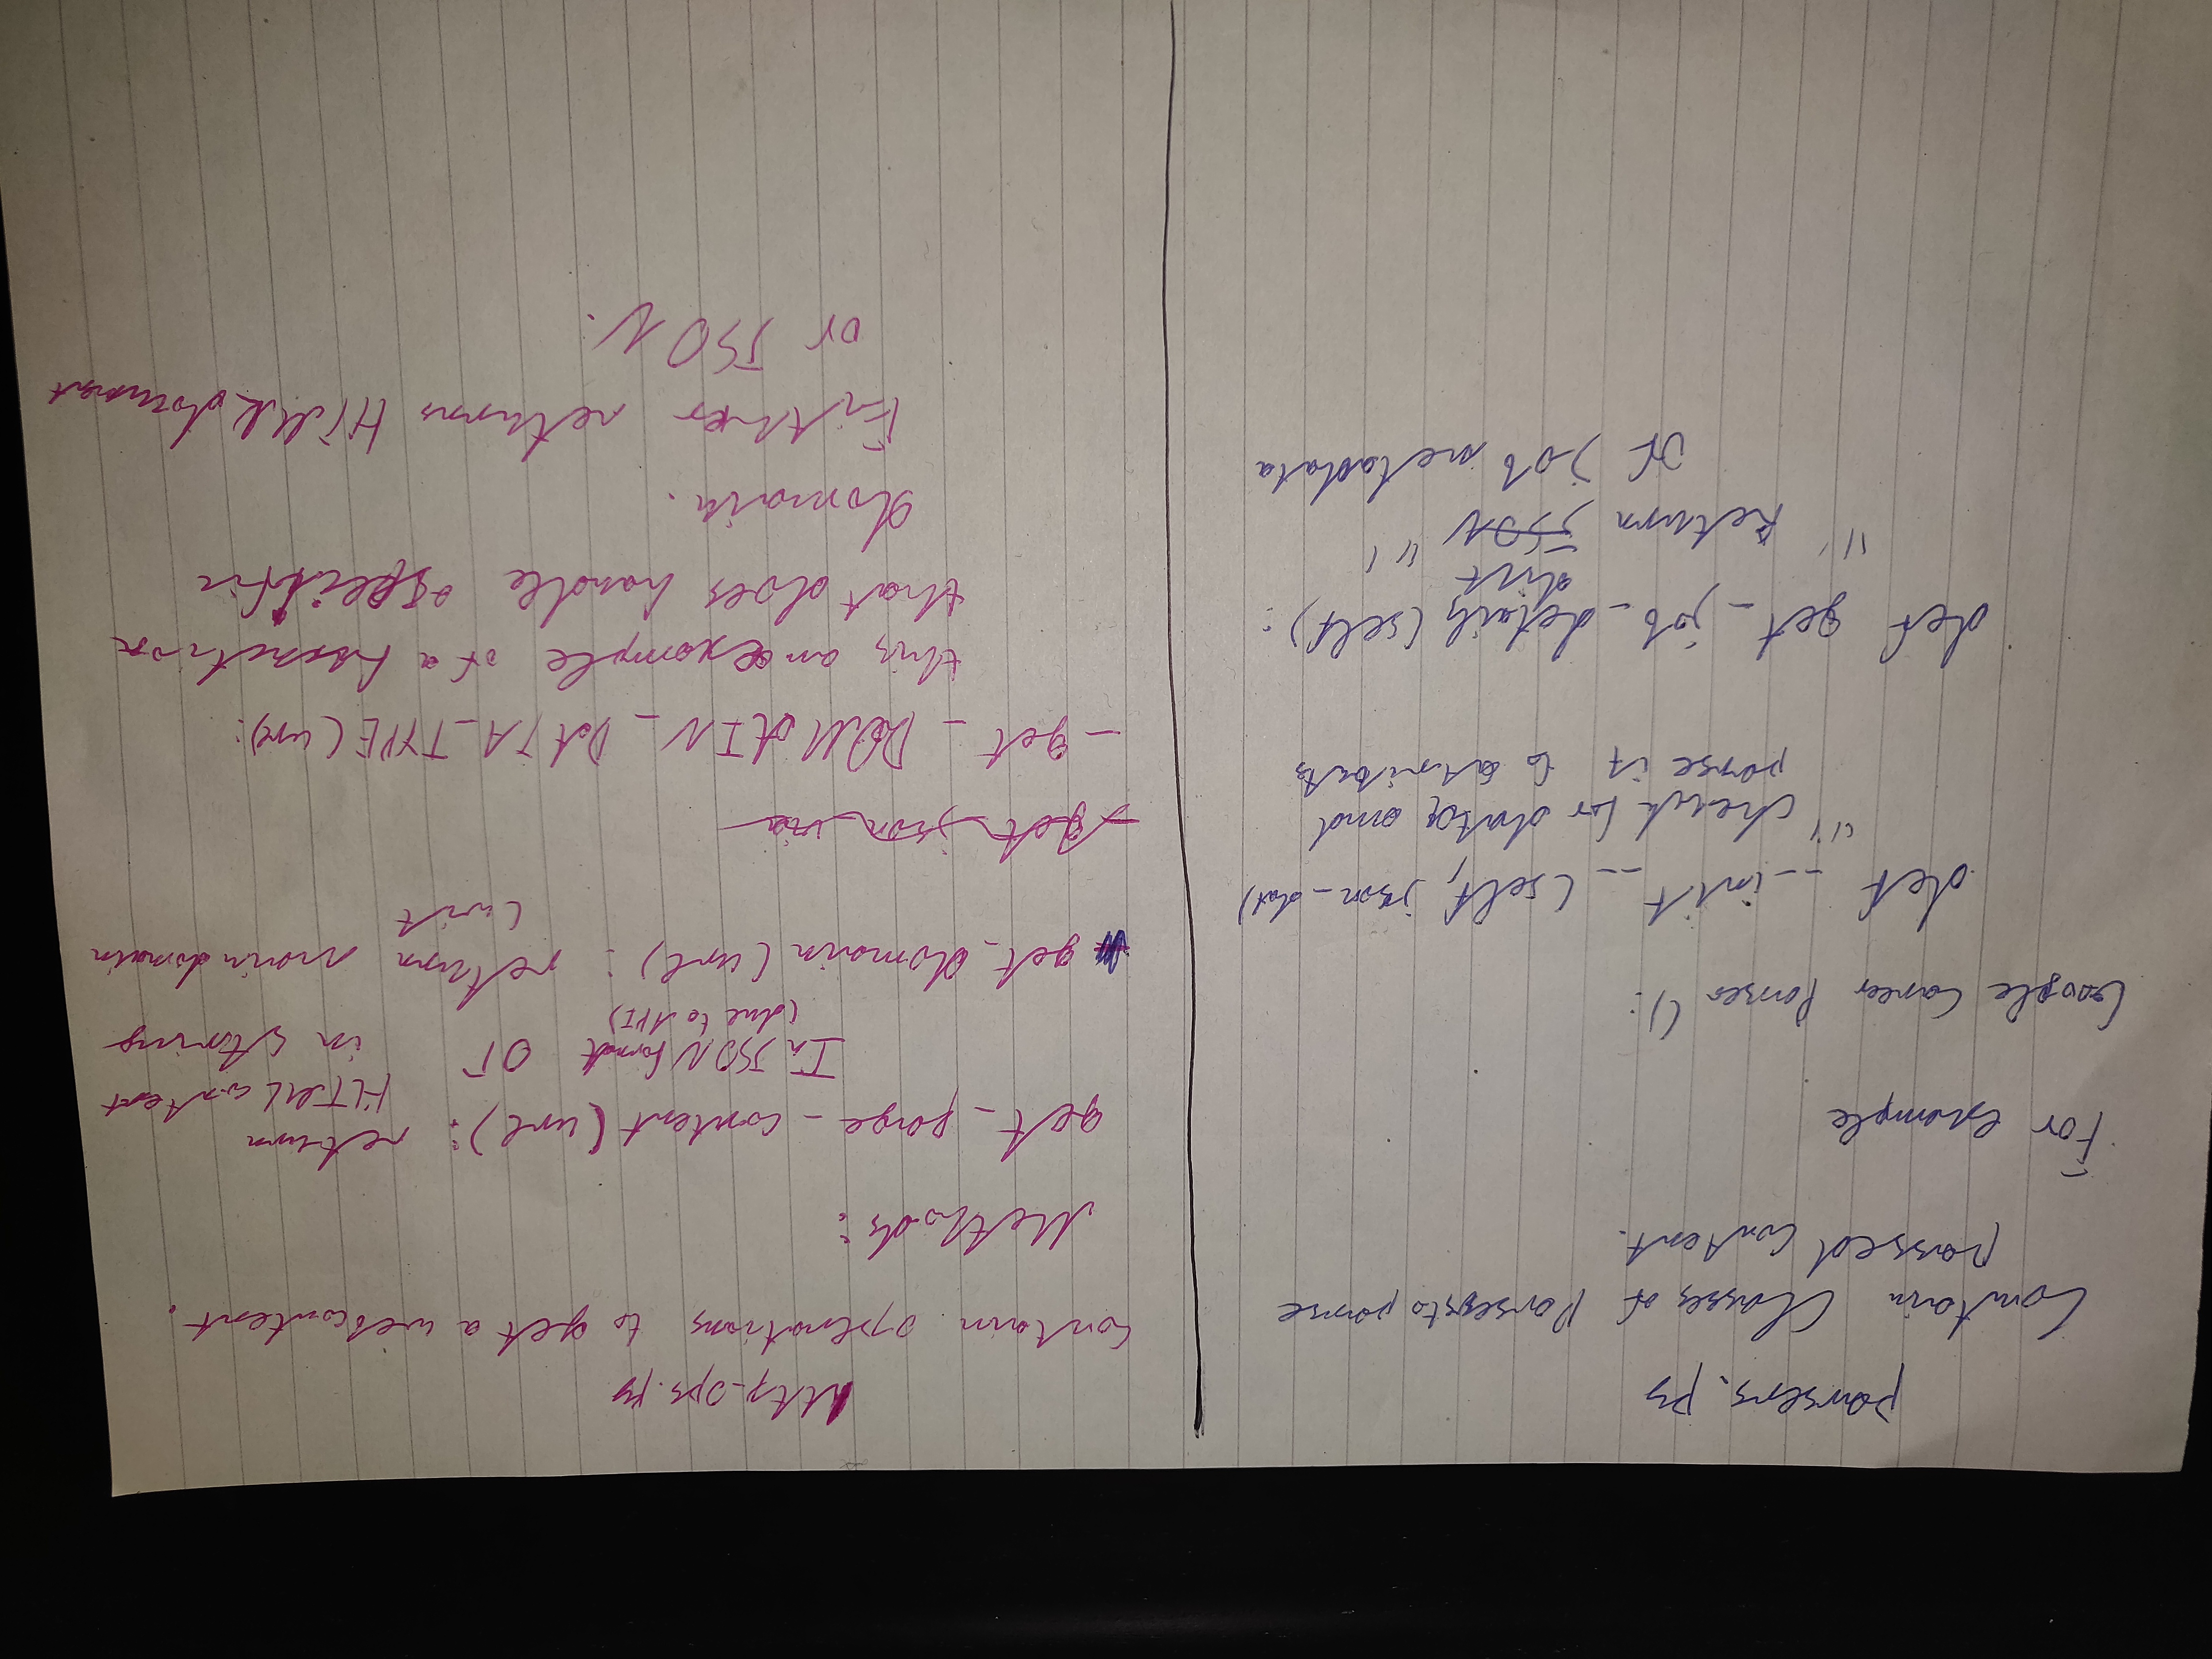 parsers.py
Contain Classes of Parsers to parse
passed content.
For example
Google Career Parser ():
def __init__ (self, json_dat)
""" check for data and
parse it to attributs
def get_job_details (self):
dict
""" Return JSON """
of job metadata
http_ops.py
contain operations to get a webcontent.
Methods:
get_page_content (url): return
HTML content
In JSON format or in string
(due to API)
get_domain (url): return main domain
(wit
_get_json_via
_get_DOMAIN_DATA_TYPE (url):
this an example of a function
that does handle a specific
domain.
Either returns HTML document
or JSON.